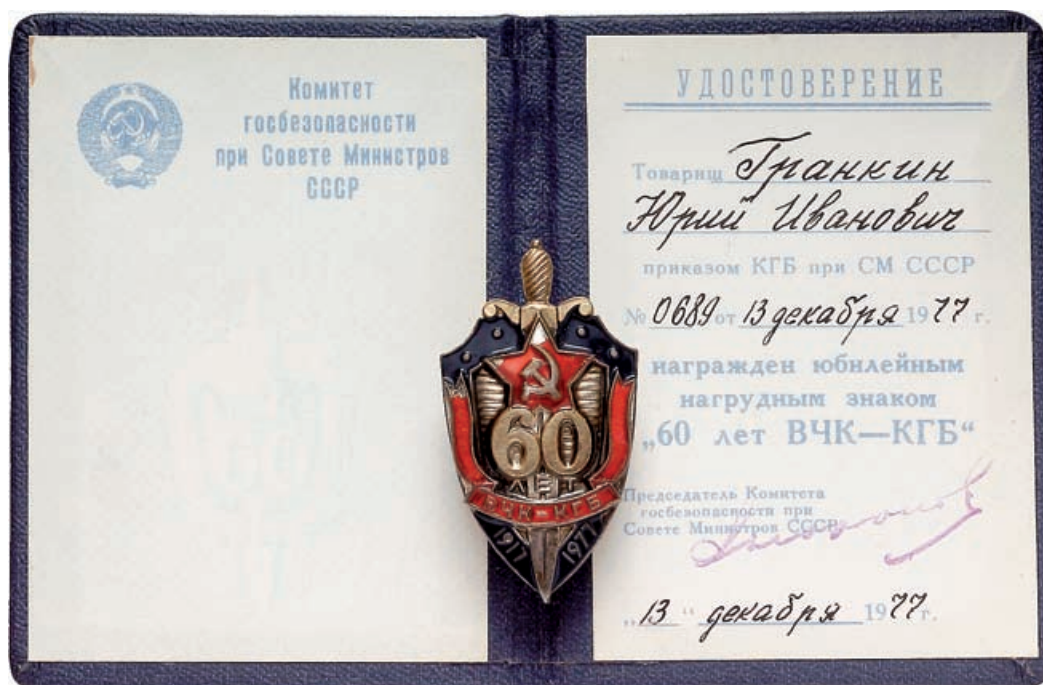 Комитет
госбезопасности
при Совете Министров
СССР
УДОСТОВЕРЕНИЕ
Товарищ Гранкин
Юрий Иванович
приказом КГБ при СМ СССР
№ 0689 от 13 декабря 1977 г.
награжден юбилейным
нагрудным знаком
„60 лет ВЧК—КГБ“
Председатель Комитета
госбезопасности при
Совете Министров СССР
„13“ декабря 1977 г.
60
ЛЕТ
ВЧК-КГБ
1917 1977